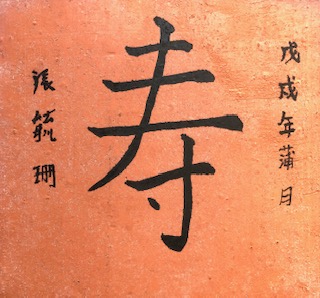 戊戌年蒲月
寿
張毓珊